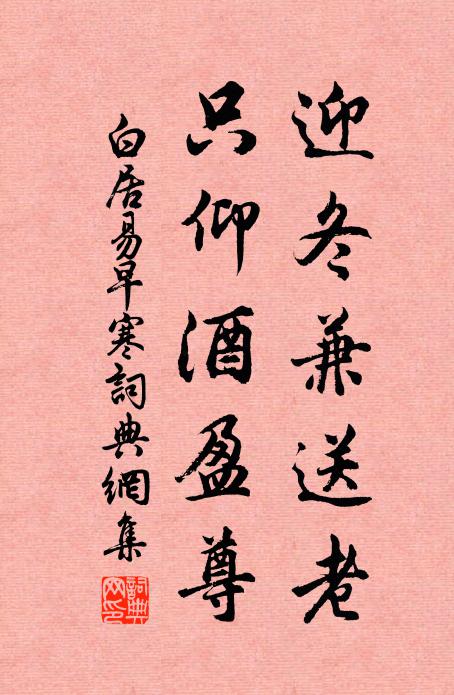 迎冬兼送老
只仰酒盈尊
白居易早寒詞典網集
詞典網印